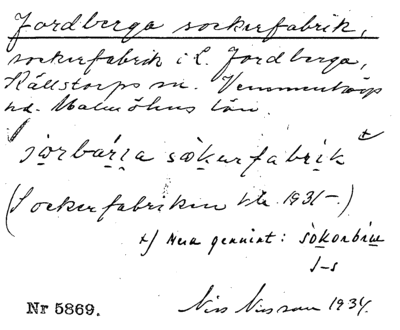 Jordberga sockerfabrik,
sockerfabrik i L. Jordberga,
Källstorps sn. Vemmenhögs
hd. Malmöhus län.
sockurfabrik +
(Sockerfabriken 1931-.)
+) Mera genuint:
J-s
Nr 5869. Nils Nilsson 1934.